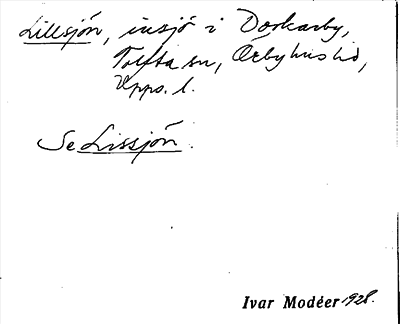 Lillsjön, insjö i Doskarby,
Tolfta sn, Örbyhus hd,
Upps. l.
Se Lissjön.
Ivar Modéer 1928.